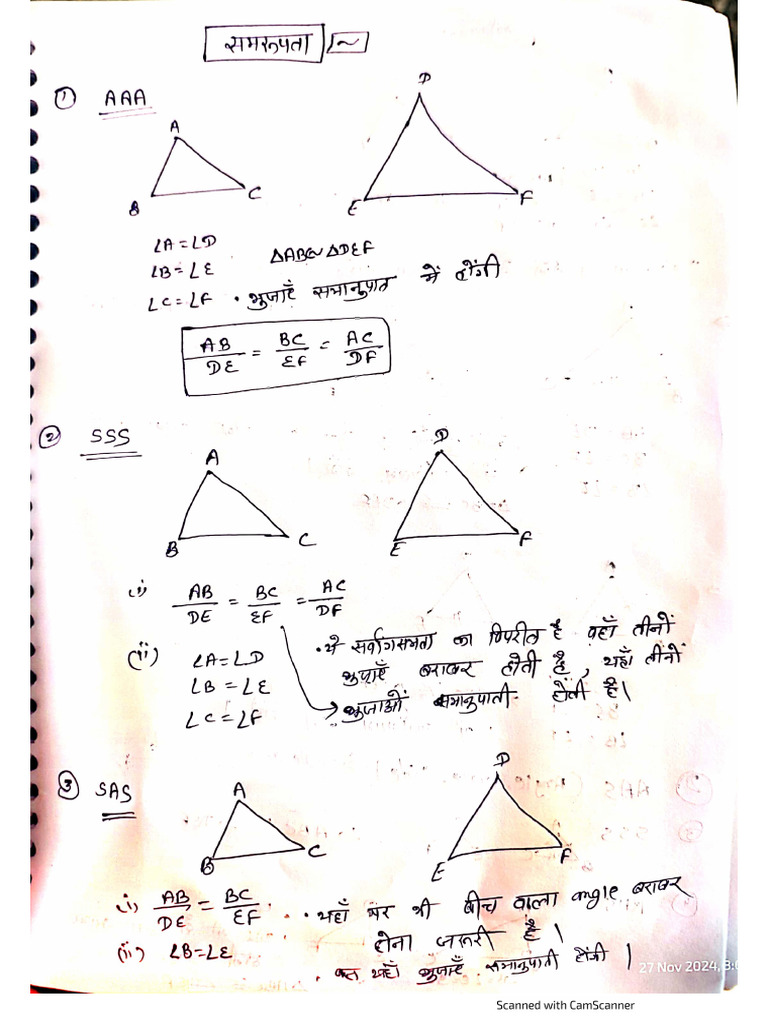 समरूपता ~
① AAA
A
D
B
C
E
F
∠A=∠D
∠B=∠E
∠C=∠F
△ABC~△DEF
• भुजाएँ समानुपात में होंगी
AB/DE = BC/EF = AC/DF
② SSS
A
D
B
C
E
F
i) AB/DE = BC/EF = AC/DF
(ii) ∠A=∠D
∠B=∠E
∠C=∠F
• ये सर्वांगसमता का विपरीत है वहाँ तीनों
भुजाएँ बराबर होती है, यहाँ तीनों
भुजाओं समानुपाती होती है।
③ SAS
A
D
B
C
E
F
i) AB/DE = BC/EF
(ii) ∠B=∠E
• यहाँ पर भी बीच वाला angle बराबर
होना जरूरी है।
• बस यहाँ भुजाएँ समानुपाती होंगी।
27 Nov 2024,
Scanned with CamScanner